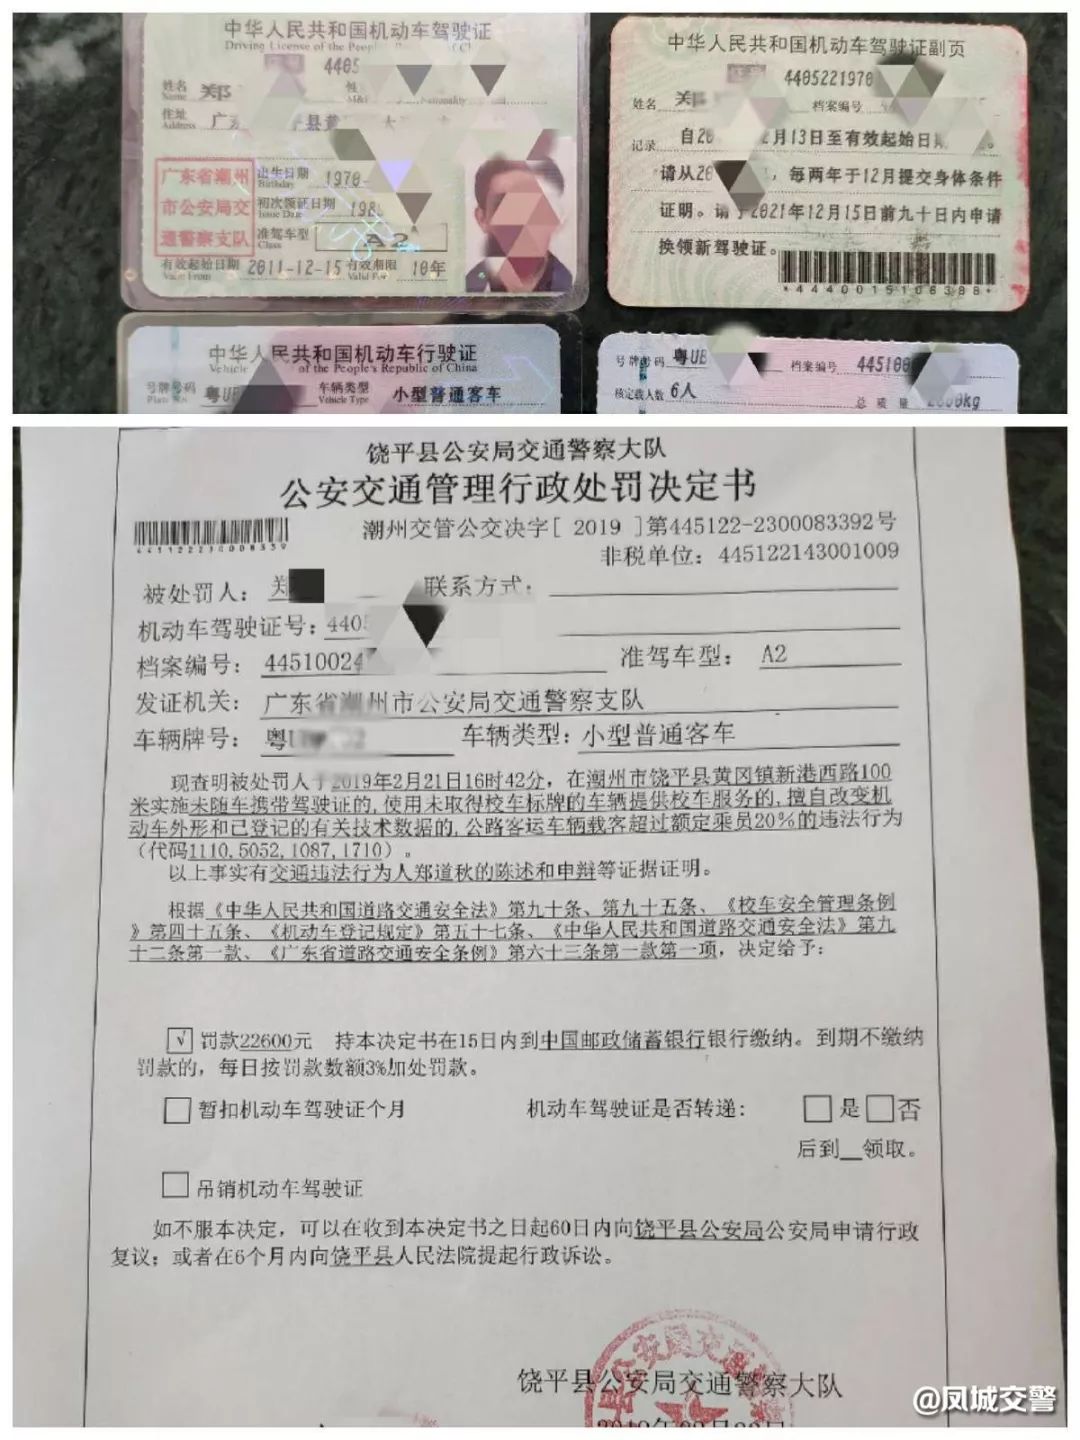 中华人民共和国机动车驾驶证
Driving License of the People's Republic of China
证号 4405
姓名 郑 性
Name M&F Nationality
住址 广东 平县黄
Address
广东省潮州
市公安局交
通警察支队
出生日期 1970-
Birthday
初次领证日期 198
Issue Date
准驾车型 A2
Class
有效起始日期 2011-12-15 有效期限 10年
Valid From Valid For
中华人民共和国机动车驾驶证副页
证号 4405221970
姓名 郑 档案编号
记录 自20 2月13日至有效起始日期
请从20 ,每两年于12月提交身体条件
证明。请于2021年12月15日前九十日内申请
换领新驾驶证。
*4440015106388*
中华人民共和国机动车行驶证
Vehicle of the People's Republic of China
号牌号码 粤UB 车辆类型 小型普通客车
Plate No. Vehicle Type
号牌号码 粤UB 档案编号 445100
核定载人数 6人 总质量 kg
饶平县公安局交通警察大队
公安交通管理行政处罚决定书
潮州交管公交决字[ 2019 ]第445122-2300083392号
非税单位：445122143001009
被处罚人：郑 联系方式：
机动车驾驶证号：4405
档案编号：44510024 准驾车型：A2
发证机关：广东省潮州市公安局交通警察支队
车辆牌号：粤U 车辆类型：小型普通客车
现查明被处罚人于2019年2月21日16时42分，在潮州市饶平县黄冈镇新港西路100
米实施未随车携带驾驶证的,使用未取得校车标牌的车辆提供校车服务的,擅自改变机
动车外形和已登记的有关技术数据的,公路客运车辆载客超过额定乘员20%的违法行为
（代码1110,5052,1087,1710）。
以上事实有交通违法行为人郑道秋的陈述和申辩等证据证明。
根据《中华人民共和国道路交通安全法》第九十条、第九十五条、《校车安全管理条例
》第四十五条、《机动车登记规定》第五十七条、《中华人民共和国道路交通安全法》第九
十二条第一款、《广东省道路交通安全条例》第六十三条第一款第一项，决定给予：
√ 罚款22600元 持本决定书在15日内到中国邮政储蓄银行银行缴纳。到期不缴纳
罚款的，每日按罚款数额3%加处罚款。
暂扣机动车驾驶证个月 机动车驾驶证是否转递： 是 否
后到__领取。
吊销机动车驾驶证
如不服本决定，可以在收到本决定书之日起60日内向饶平县公安局公安局申请行政
复议；或者在6个月内向饶平县人民法院提起行政诉讼。
饶平县公安局交通警察大队
@凤城交警